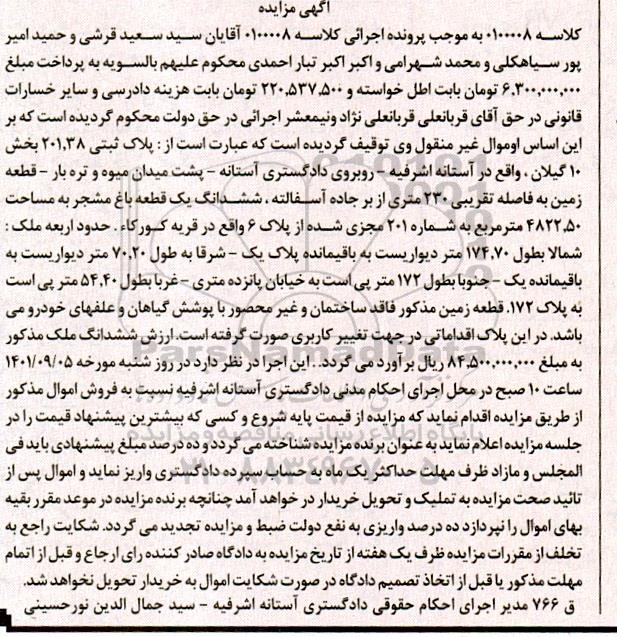 آگهی مزایده
کلاسه ۰۱۰۰۰۰۸ به موجب پرونده اجرائی کلاسه ۰۱۰۰۰۰۸ آقایان سید سعید قرشی و حمید امیر
پور سیاهکلی و محمد شهرامی و اکبر اکبر تبار احمدی محکوم علیهم بالسویه به پرداخت مبلغ
۶.۳۰۰.۰۰۰.۰۰۰ تومان بابت اطل خواسته و ۲۲۰.۵۳۷.۵۰۰ تومان بابت هزینه دادرسی و سایر خسارات
قانونی در حق آقای قربانعلی قربانعلی نژاد ونیمعشر اجرائی در حق دولت محکوم گردیده است که بر
این اساس اوموال غیر منقول وی توقیف گردیده است که عبارت است از : پلاک ثبتی ۲۰۱.۳۸ بخش
۱۰ گیلان ، واقع در آستانه اشرفیه - روبروی دادگستری آستانه - پشت میدان میوه و تره بار - قطعه
زمین به فاصله تقریبی ۲۳۰ متری از بر جاده آسفالته ، ششدانگ یک قطعه باغ مشجر به مساحت
۴۸۲۲.۵۰ مترمربع به شماره ۲۰۱ مجزی شده از پلاک ۶ واقع در قریه کورکاء . حدود اربعه ملک :
شمالا بطول ۱۷۴.۷۰ متر دیواریست به باقیمانده پلاک یک - شرقا به طول ۷۰.۲۰ متر دیواریست به
باقیمانده یک - جنوبا بطول ۱۷۲ متر پی است به خیابان پانزده متری - غربا بطول ۵۴.۴۰ متر پی است
به پلاک ۱۷۲. قطعه زمین مذکور فاقد ساختمان و غیر محصور با پوشش گیاهان و علفهای خودرو می
باشد. در این پلاک اقداماتی در جهت تغییر کاربری صورت گرفته است. ارزش ششدانگ ملک مذکور
به مبلغ ۸۴.۵۰۰.۰۰۰.۰۰۰ ریال بر آورد می گردد. . این اجرا در نظر دارد در روز شنبه مورخه ۱۴۰۱/۰۹/۰۵
ساعت ۱۰ صبح در محل اجرای احکام مدنی دادگستری آستانه اشرفیه نسبت به فروش اموال مذکور
از طریق مزایده اقدام نماید که مزایده از قیمت پایه شروع و کسی که بیشترین پیشنهاد قیمت را در
جلسه مزایده اعلام نماید به عنوان برنده مزایده شناخته می گردد و ده درصد مبلغ پیشنهادی باید فی
المجلس و مازاد ظرف مهلت حداکثر یک ماه به حساب سپرده دادگستری واریز نماید و اموال پس از
تائید صحت مزایده به تملیک و تحویل خریدار در خواهد آمد چنانچه برنده مزایده در موعد مقرر بقیه
بهای اموال را نپردازد ده درصد واریزی به نفع دولت ضبط و مزایده تجدید می گردد. شکایت راجع به
تخلف از مقررات مزایده ظرف یک هفته از تاریخ مزایده به دادگاه صادر کننده رای ارجاع و قبل از اتمام
مهلت مذکور یا قبل از اتخاذ تصمیم دادگاه در صورت شکایت اموال به خریدار تحویل نخواهد شد.
ق ۷۶۶ مدیر اجرای احکام حقوقی دادگستری آستانه اشرفیه - سید جمال الدین نورحسینی